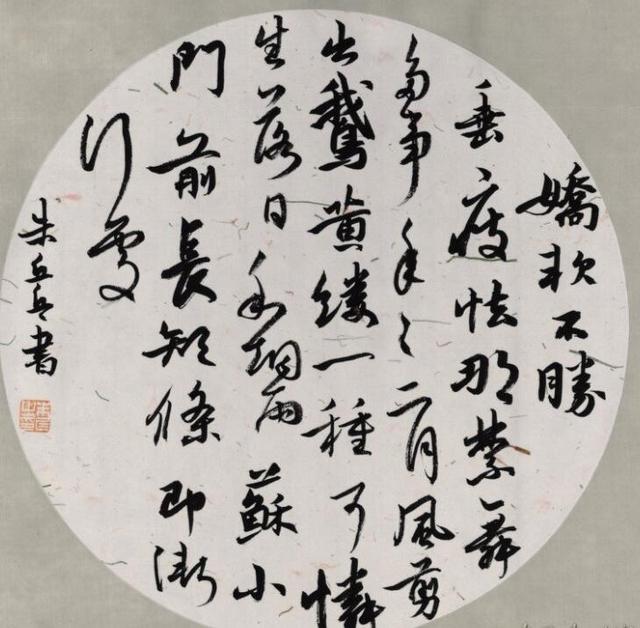 嬌軟不勝
垂瘦怯那禁舞
多事年々二月風剪
出鵝黄縷一種可憐
生落日和烟雨蘇小
門前長短條即漸
行處
朱兵書